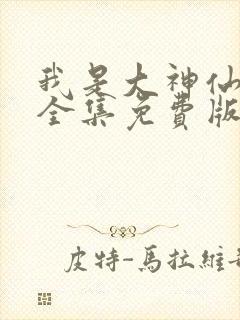 我是大神仙
全集免費版
皮特-馬拉維